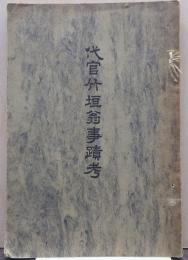 代官竹垣翁事蹟考